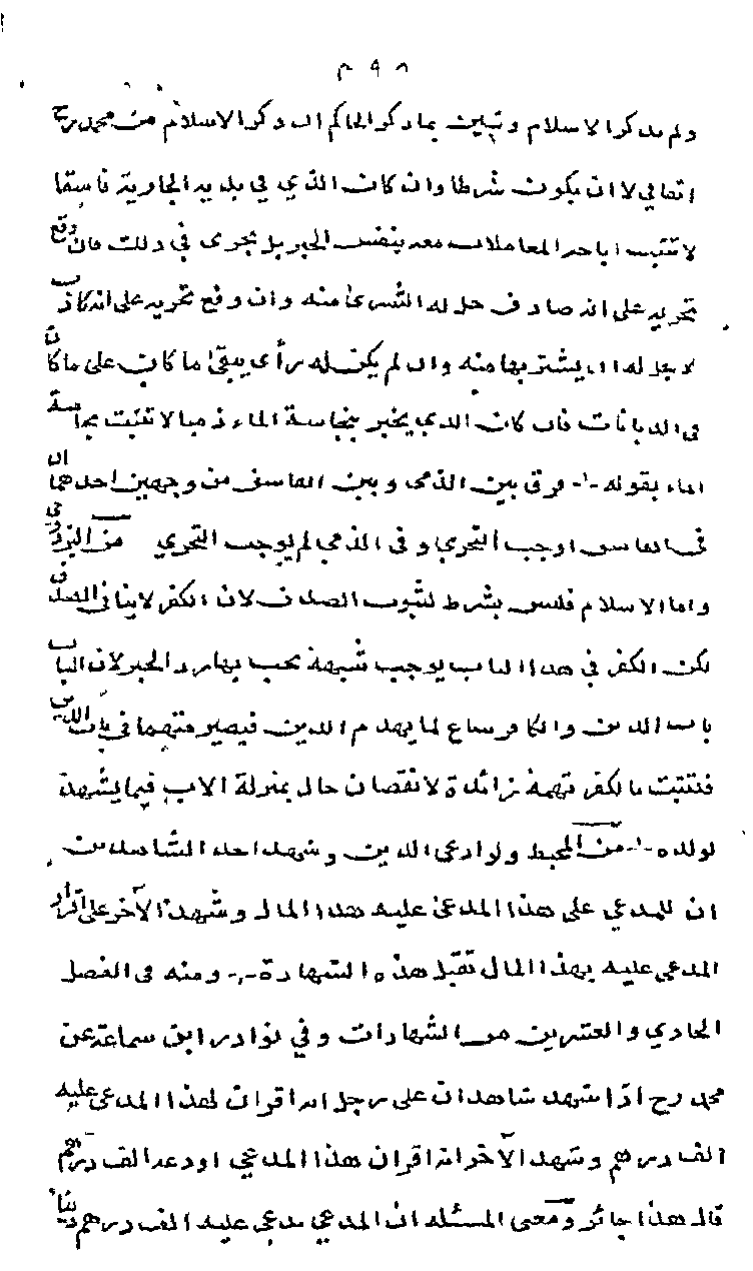 ٤٩٨
ولم يذكر الاسلام وتبين بما ذكر الحاكم ان ذكر الاسلام من محمد رح
اتفاقي لا ان يكون شرطا وان كان الذي في يديه الجارية فاسقا
لا تثبت اباحة المعاملات معه بنفس الخبر بل يتحرى في ذلك فان وقع
تحريه على انه صادق حل له الشرى منه وان وقع تحريه على انه كاذب
لا يحل له ان يشتريها منه وان لم يكن له رأى يبقى ما كان على ما كان
فى الديانات فان كان الذي يخبر بنجاسة الماء ذميا لا تثبت نجاسة
الماء بقوله فرق بين الذمى وبين الفاسق من وجهين احدهما ان
فى الفاسق اوجب التحري وفى الذمي لم يوجب التحري من البزدوى
واما الاسلام فليس بشرط لثبوت الصدق لان الكفر لا ينافى الصدق
لكن الكفر في هذا الباب يوجب شبهة يجب بها رد الخبر لان الباب
باب الدين والكافر ساع لما يهدم الدين فيصير متهما فى باب الدين
فتثبت بالكفر تهمة زائدة لا نقصان حال بمنزلة الاب فيما يشهد
لولده من المحيط ولو ادعى الدين وشهد احد الشاهدين
ان للمدعي على هذا المدعى عليه هذا المال وشهد الآخر على اقرار
المدعى عليه بهذا المال تقبل هذه الشهادة ومنه فى الفصل
الحادي والعشرين من الشهادات وفي نوادر ابن سماعة عن
محمد رح اذا شهد شاهدان على رجل انه اقر ان لهذا المدعى عليه
الف درهم وشهد الآخر انه اقر ان هذا المدعي اودعه الف درهم
قال هذا جائز ومعنى المسئلة ان المدعي يدعي عليه الف درهم دينا